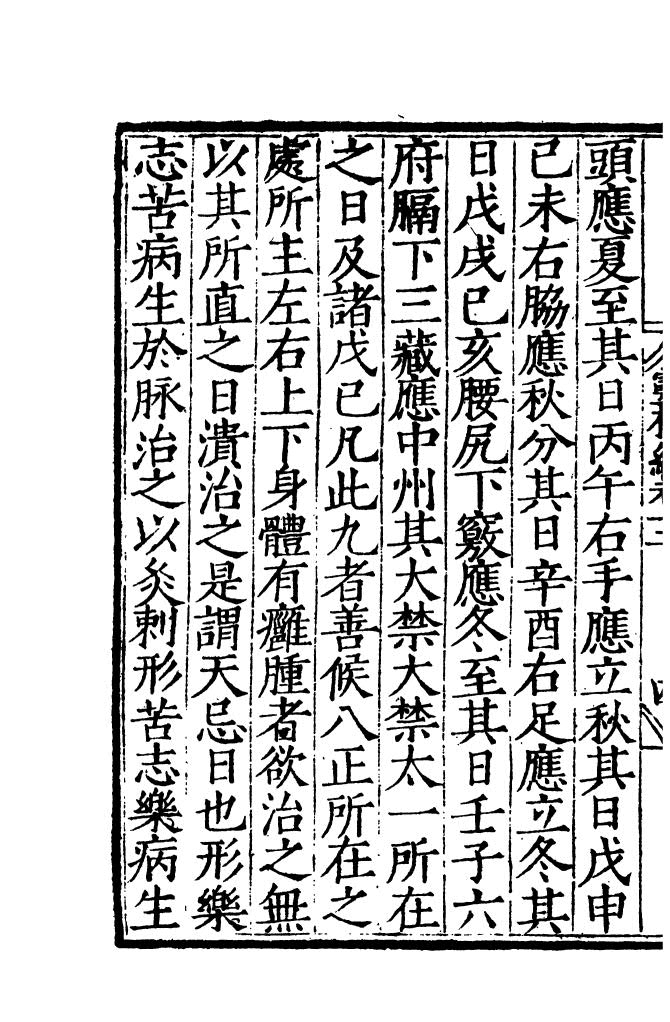 頭應夏至其日丙午右手應立秋其日戊申
已未右脇應秋分其日辛酉右足應立冬其
日戊戌已亥腰尻下竅應冬至其日壬子六
府膈下三藏應中州其大禁大禁太一所在
之日及諸戊已凡此九者善候八正所在之
處所主左右上下身體有癰腫者欲治之無
以其所直之日潰治之是謂天忌日也形樂
志苦病生於脉治之以灸刺形苦志樂病生